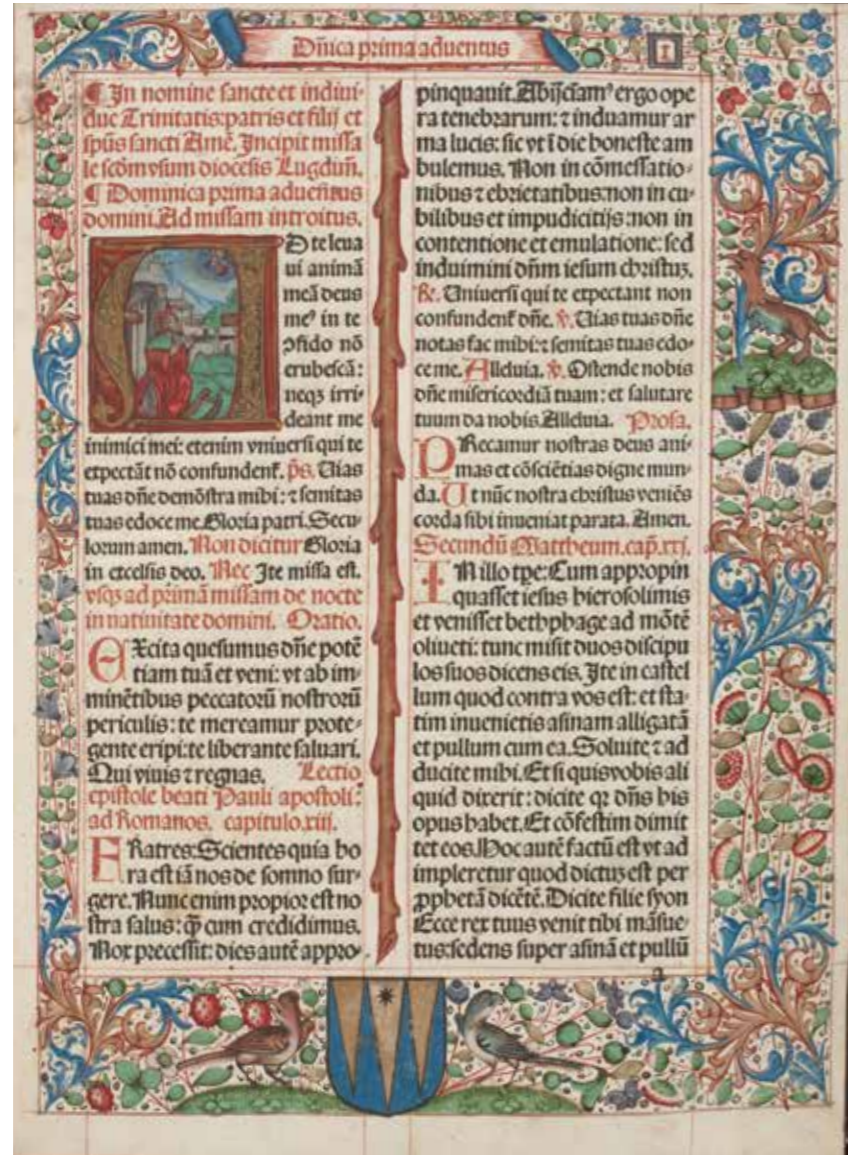 Dñica prima aduentus
I
¶ In nomine sancte et indiui-
due Trinitatis: patris et filij et
spũs sancti Amẽ. Incipit missa
le scõm vsum diocesis Lugduñ.
¶ Dominica prima aduentus
domini. Ad missam introitus.
AD te leua
ui animã
meã deus
meꝰ in te
ↄfido nõ
erubescã:
neqꝫ irri-
deant me
inimici mei: etenim vniuersi qui te
expectãt nõ confundenť. p̃s. Uias
tuas dñe demõstra mihi: ⁊ semitas
tuas edoce me. Gloria patri. Secu
lorum amen. Non dicitur Gloria
in excelsis deo. Nec Ite missa est.
vsqꝫ ad primã missam de nocte
in natiuitate domini. Oratio.
EXcita quesumus dñe potẽ
tiam tuã et veni: vt ab im-
minẽtibus peccatorũ nostrorũ
periculis: te mereamur prote-
gente eripi: te liberante saluari.
Qui viuis ⁊ regnas. Lectio
epistole beati Pauli apostoli:
ad Romanos. capitulo.xiij.
FRatres: Scientes quia ho
ra est iã nos de somno sur-
gere. Nunc enim propior est no
stra salus: ꝙ̃ cum credidimus.
Nox precessit: dies autẽ appro-
pinquauit. Abijciamꝰ ergo ope
ra tenebrarum: ⁊ induamur ar
ma lucis: sic vt ĩ die honeste am
bulemus. Non in cõmessatio-
nibus ⁊ ebrietatibus: non in cu-
bilibus et impudicitijs: non in
contentione et emulatione: sed
induimini dñm iesum christuꝫ.
℟. Uniuersi qui te expectant non
confundenť dñe. ℣. Uias tuas dñe
notas fac mihi: ⁊ semitas tuas edo-
ce me. Alleluia. ℣. Ostende nobis
dñe misericordiã tuam: et salutare
tuum da nobis. Alleluia. Prosa.
PRecamur nostras deus ani-
mas et cõsciẽtias digne mun-
da. Ut nũc nostra christus veniẽs
corda sibi inueniat parata. Amen.
Secundũ Mattheum. cap̃. xxj.
IN illo tp̃e: Cum appropin
quasset iesus hierosolimis
et venisset bethphage ad mõtẽ
oliueti: tunc misit duos discipu
los suos dicens eis. Ite in castel
lum quod contra vos est: et sta-
tim inuenietis asinam alligatã
et pullum cum ea. Soluite ⁊ ad
ducite mihi. Et si quis vobis ali
quid dixerit: dicite qꝛ dñs his
opus habet. Et cõfestim dimit
tet eos. Hoc autẽ factũ est vt ad
impleretur quod dictuꝫ est per
ꝓphetã dicẽtẽ. Dicite filie syon
Ecce rex tuus venit tibi mãsue-
tus: sedens super asinã et pullũ
a